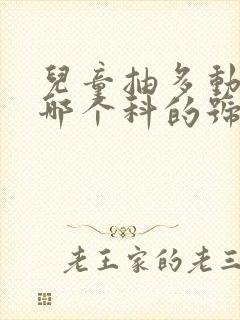 兒童抽多動
哪个科的號
老王家的老三